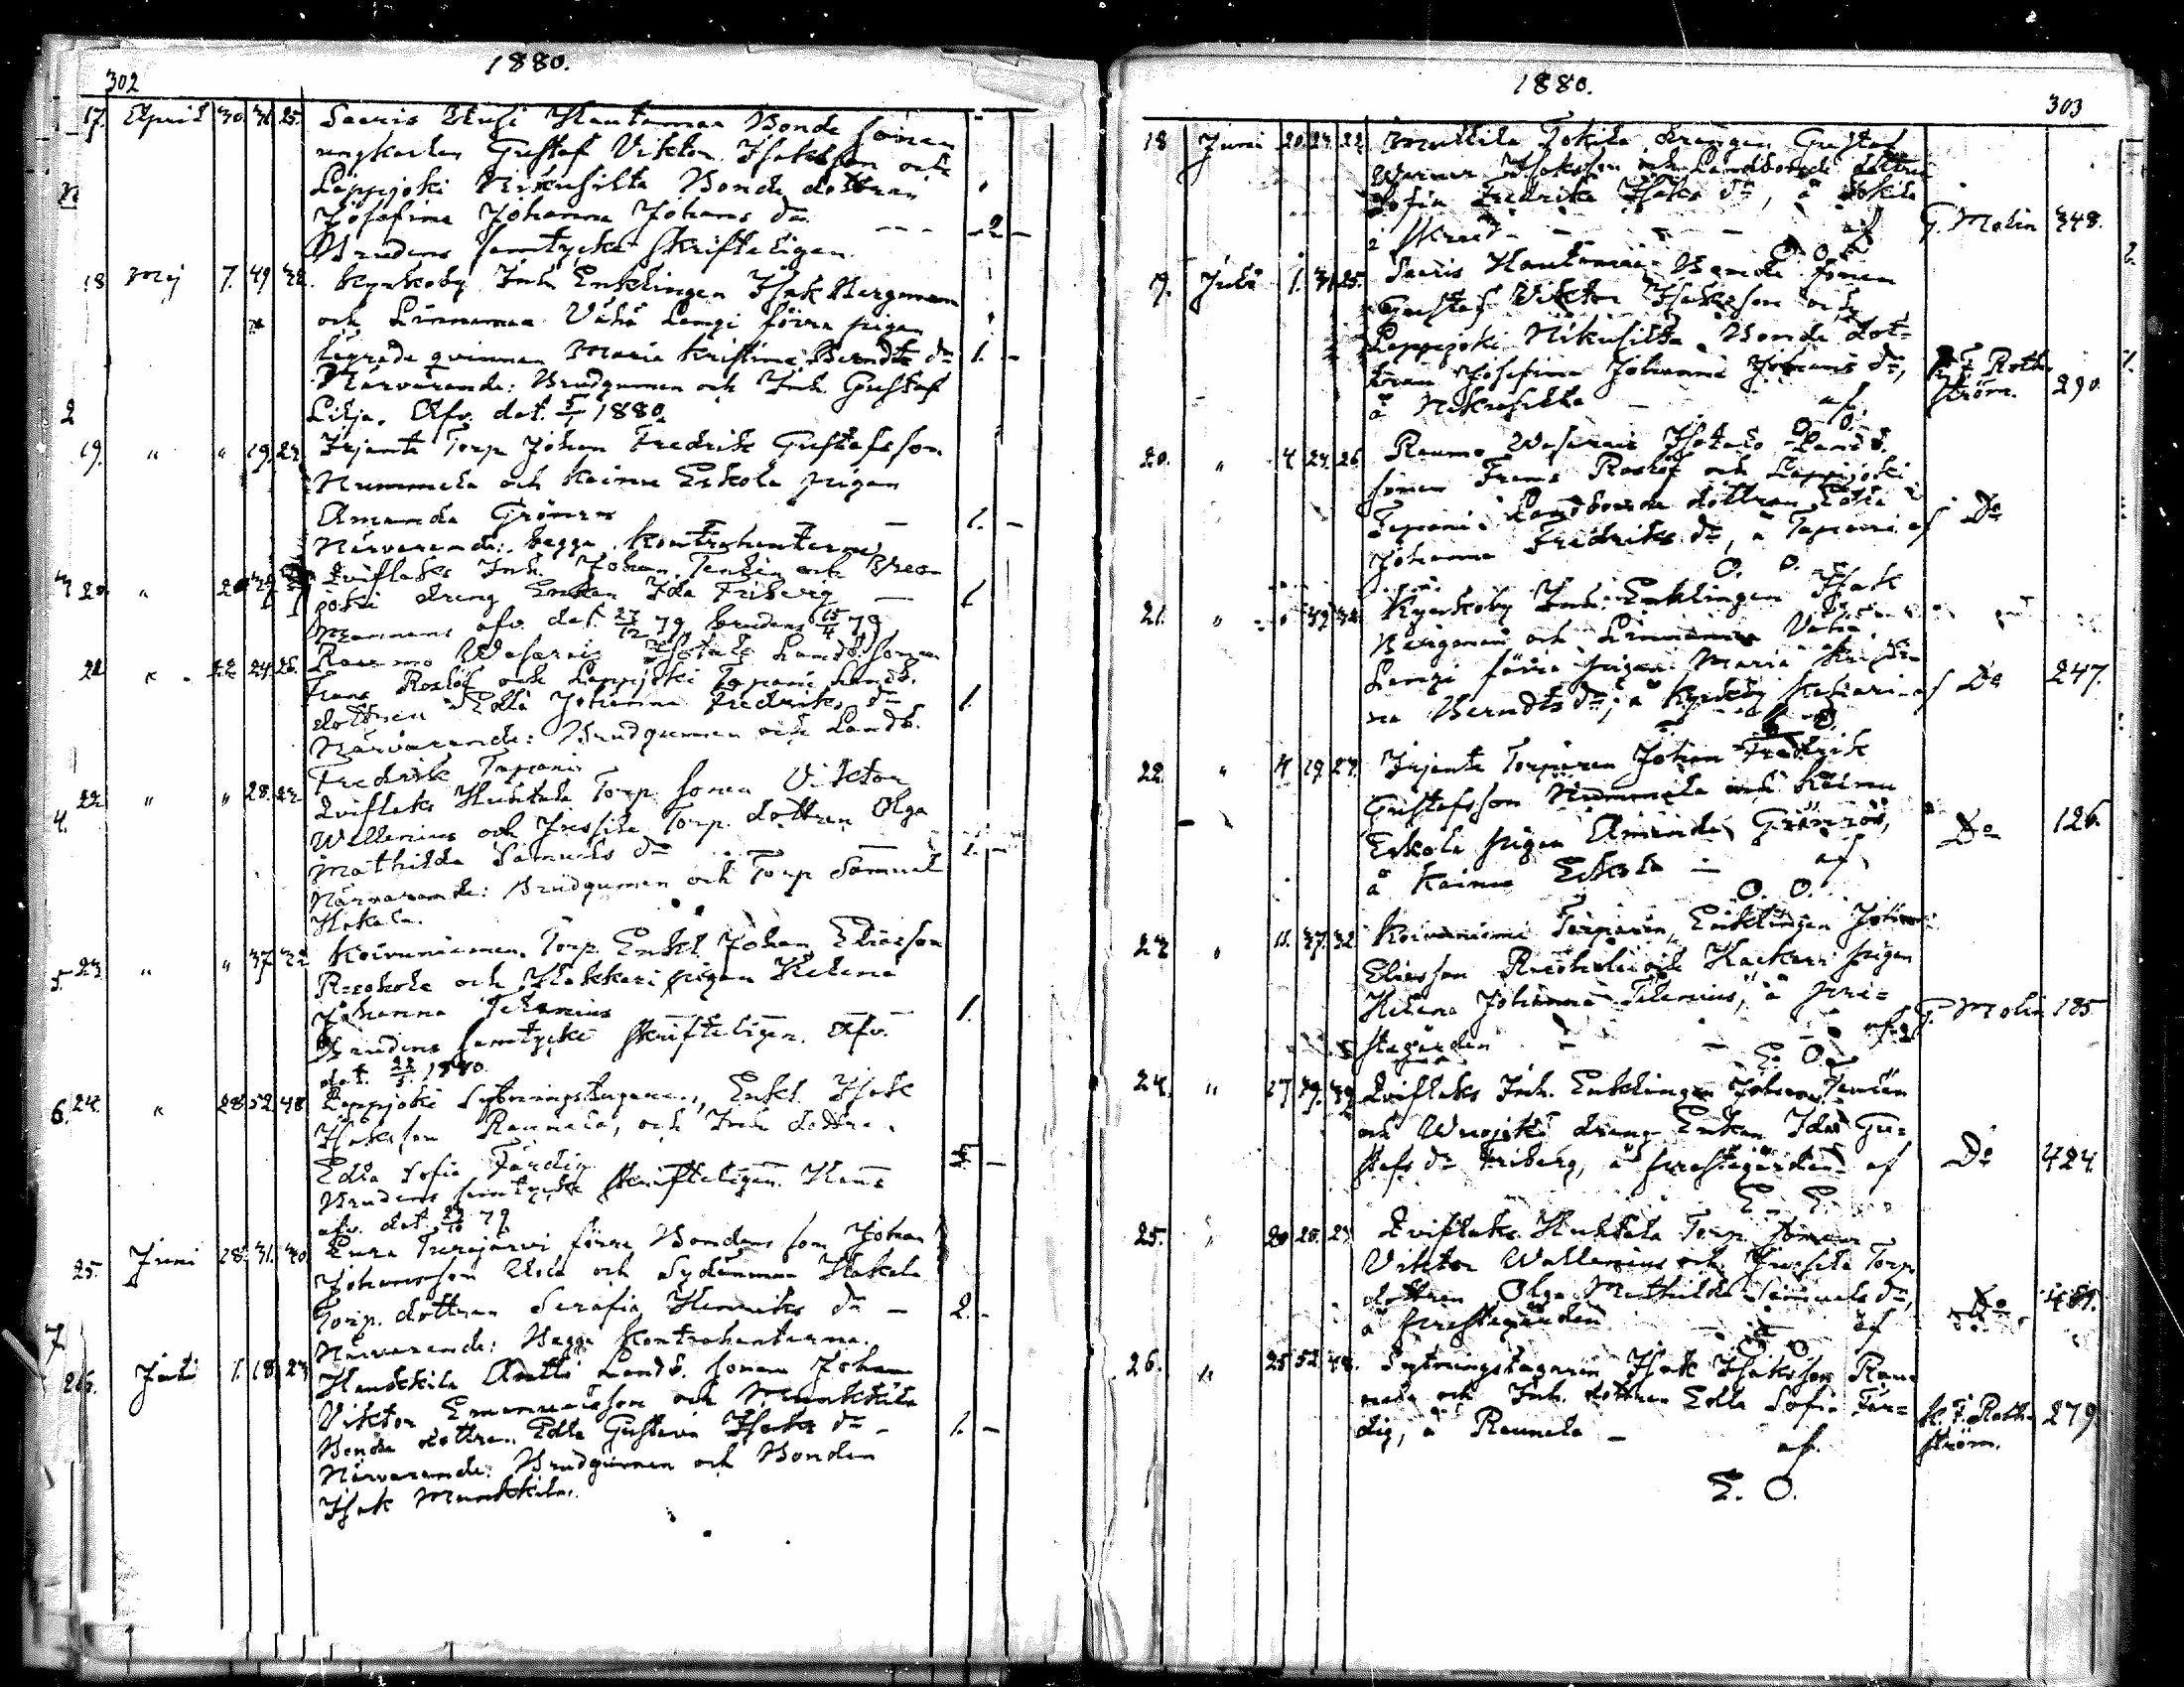 1880.
302
17. April 30. 31. 25. Saaris Uusi Hautamaa Bonde sonen
ungkarlen Gustaf Viktor Isaksson och
Lappjoki Nikusilta Bonde dottren
Josefina Johanna Johans dr. - - - 2 -
Brudens samtycke skrifteligen.
18 Maj 7. 49 32. Kyrkoby Inh. Enklingen Isak Bergman
och Linnamaa Vähä Lemgi förra pigan
lägrade qvinnan Maria Kristina Berndts dr 1. -
Närvarande: Brudgumen och Inh. Gustaf
Lilja. Afv. dat. 5/1 1880.
19. " " 19. 27 Irjante Torp. Johan Fredrik Gustafsson
Nummela och Kainu Eskola pigan
Amanda Grönroos — 1. -
Närvarande: begge kontrahenterna
20. " Qviflaks Inh. Johan och
joki dreng Enkan Ida Friberg — 1
Mannens afv. dat. 27/12 79, brudens 15/4 79
21 " 22 24. 26. Raumo Wasarais Isotalo Landb. sonen
Frans Roslöf och Lappjoki Tapani Landb.
dottren Edla Johanna Fredriks dr 1.
Närvarande: Brudgumen och Landb.
Fredrik Tapani
22 " " 28. 22 Qviflaks Huhtala Torp. sonen Viktor
Wallenius och Jussila Torp. dottren Olga
Mathilda Samuels dr — 1. -
Närvarande: Brudgumen och Torp. Samuel
Hakala.
23 " " 37 32 Koivuniemen Torp. Enkl. Johan Eliasson
och Hakkeri pigan Helena
Johanna Telenius — 1.
Brudens samtycke skrifteligen. Afv.
dat. 22/5 1880.
24. " 28 52. 48 Lappjoki Sytningstagaren, Enkl. Isak
Isaksson Raunela, och Inh. dottren
Edla Sofia Färdig
Brudens samtycke skrifteligen. Hans
afv. dat. 79
25. Juni 28. 31. 30 Eura Turajärvi förra Bondens son Johan
Johansson och Sydänmaa Hakala
Torp. dottren Serafia Henriks dr — 2. -
Närvarande: Begge kontrahenterna.
26. Juli 1. 18. 23 Antti Landb. sonen Johan
Viktor Emanuelsson och Munkkila
Bonde dottren Edla Gustava Isaks dr - 1. -
Närvarande: Brudgumen och Bonden
Isak Munkkila.
1880.
303
18 Juni 20. 24. 22 Mullila Tokila drengen Gustaf
Werner Isaksson och Landbonde dottren
Sofia Fredrika Isaks dr, å Tokila
i - - - af G. Molin 348.
O. O.
19. Juli 1. 31 25. Saaris Hautamaa Bonde sonen
Gustaf Viktor Isaksson och
Lappjoki Nikusilta Bonde dot-
tren Josefina Johanna Johans dr, K. F. Roth-
å Nikusilta — af ström. 290.
O. O.
20. " 4 24. 26 Raumo Wasarais Isotalo Landb.
sonen Frans Roslöf och Lappjoki
Tapani Landbonde dottren Edla
Johanna Fredriks dr, å Tapani af Do
O. O.
21. " " 39 32. Kyrkoby Inh. Enklingen Isak
Bergman och Linnamaa Vähä
Lemgi förra pigan Maria Kristi-
na Berndts dr, å Kyrkoby af Do 247.
O.
22. " 4 19 27. Irjante Torparen Johan Fredrik
Gustafsson Nummela och Kainu
Eskola pigan Amanda Grönroos, Do 126.
å Kainu Eskola — af
O. O.
23 " 11. 37. 32 Koivuniemi Torparen, Enklingen Johan
Eliasson och Hackeri pigan
Helena Johanna Telenius, å pre-
stgården - - af G. Molin 185
E. O.
24. " 17 39. 39 Qviflaks Inh. Enklingen Johan
och Wuojoki dreng Enkan Ida Gu-
stafs dr Friberg, å prestegården af Do 424.
E. E.
25. " 20 28. 23 Qviflaks Huhtala Torp. sonen
Viktor Wallenius och Jussila Torp.
dottren Olga Mathilda Samuels dr,
å prestegården — af Do
O O
26. " 25 52. 48. Sytningstagaren Isak Isaksson Rau-
nela och Inh. dottren Edla Sofia Fär-
dig, å Raunela — af K. F. Roth-
ström. 279
E. O.